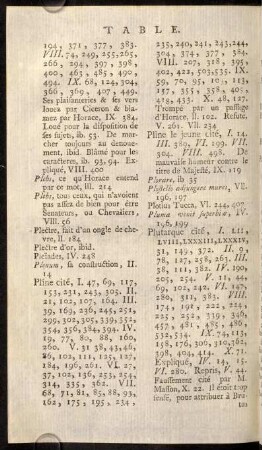 TABLE.
194, 371, 377, 383.
VIII. 74, 249, 255, 265,
266, 294, 397, 398,
400, 463, 485, 490,
494. IX. 68, 124, 304,
366, 369, 407, 449.
Ses plaisanteries & ses vers
loués par Ciceron & blâ-
mez par Horace, IX. 384.
Loué pour la disposition de
ses sujets, ib. 53. De mar-
cher toujours au denoue-
ment, ibid. Blâmé pour les
caracteres, ib. 93, 94. Ex-
pliqué, VIII. 400
Plebs, ce qu'Horace entend
par ce mot, III. 214
Plebs, tous ceux, qui n'avoient
pas assez de bien pour être
Senateurs, ou Chevaliers,
VIII. 96
Plectre, fait d'un ongle de che-
vre, II. 184
Plectre d'or, ibid.
Pleiades, IV. 248
Plenum, sa construction, II.
14
Pline cité, I. 47, 69, 117,
153, 231, 243, 305. II.
21, 102, 107, 164. III.
39, 169, 236, 245, 251,
299, 302, 305, 339, 352,
354, 356, 384, 394. IV.
19, 77, 80, 88, 160,
260. V. 31, 38, 43, 46,
86, 102, 111, 125, 127,
184, 196, 261. VI. 27,
37, 126, 136, 253, 254,
314, 335, 362. VII.
68, 71, 81, 85, 88, 93,
162, 175, 195, 234,
235, 240, 241, 243, 244,
304, 374, 377, 384.
VIII. 207, 318, 395,
402, 422, 503, 535. IX.
59, 70, 95, 103, 113,
157, 355, 358, 405,
419, 433. X. 48, 127.
Trompé par un passage
d'Horace, II. 102. Refuté,
V. 261. VII. 234
Pline le jeune cité, I. 14.
III. 380, VI. 199. VII.
304. VIII. 498. De
mauvaise humeur contre le
titre de Majesté, IX. 119
Plorare, ib. 35
Plostello adjungere mures, VII.
196, 197
Plotius Tucca, VI. 244, 407
Pluma manus superbiæ, IV.
196, 199
Plutarque cité, I. LII,
LVIII, LXXXIII, LXXXIV,
31, 149, 372. II. 9,
78, 127, 258, 263. III.
38, 111, 382. IV. 190,
205, 254. V. 21, 44,
69, 102, 242. VI. 147,
280, 311, 383. VII.
174, 191, 222, 224,
225, 252, 339, 346,
457, 481, 485, 486,
532, 534. IX. 74, 113,
158, 176, 300, 310, 362,
398, 404, 414. X. 71.
Expliqué, IV. 14, 15.
VI. 280. Repris, V. 44.
Faussement cité par M.
Masson, X. 22. Il étoit trop
sensé, pour attribuer à Bru-